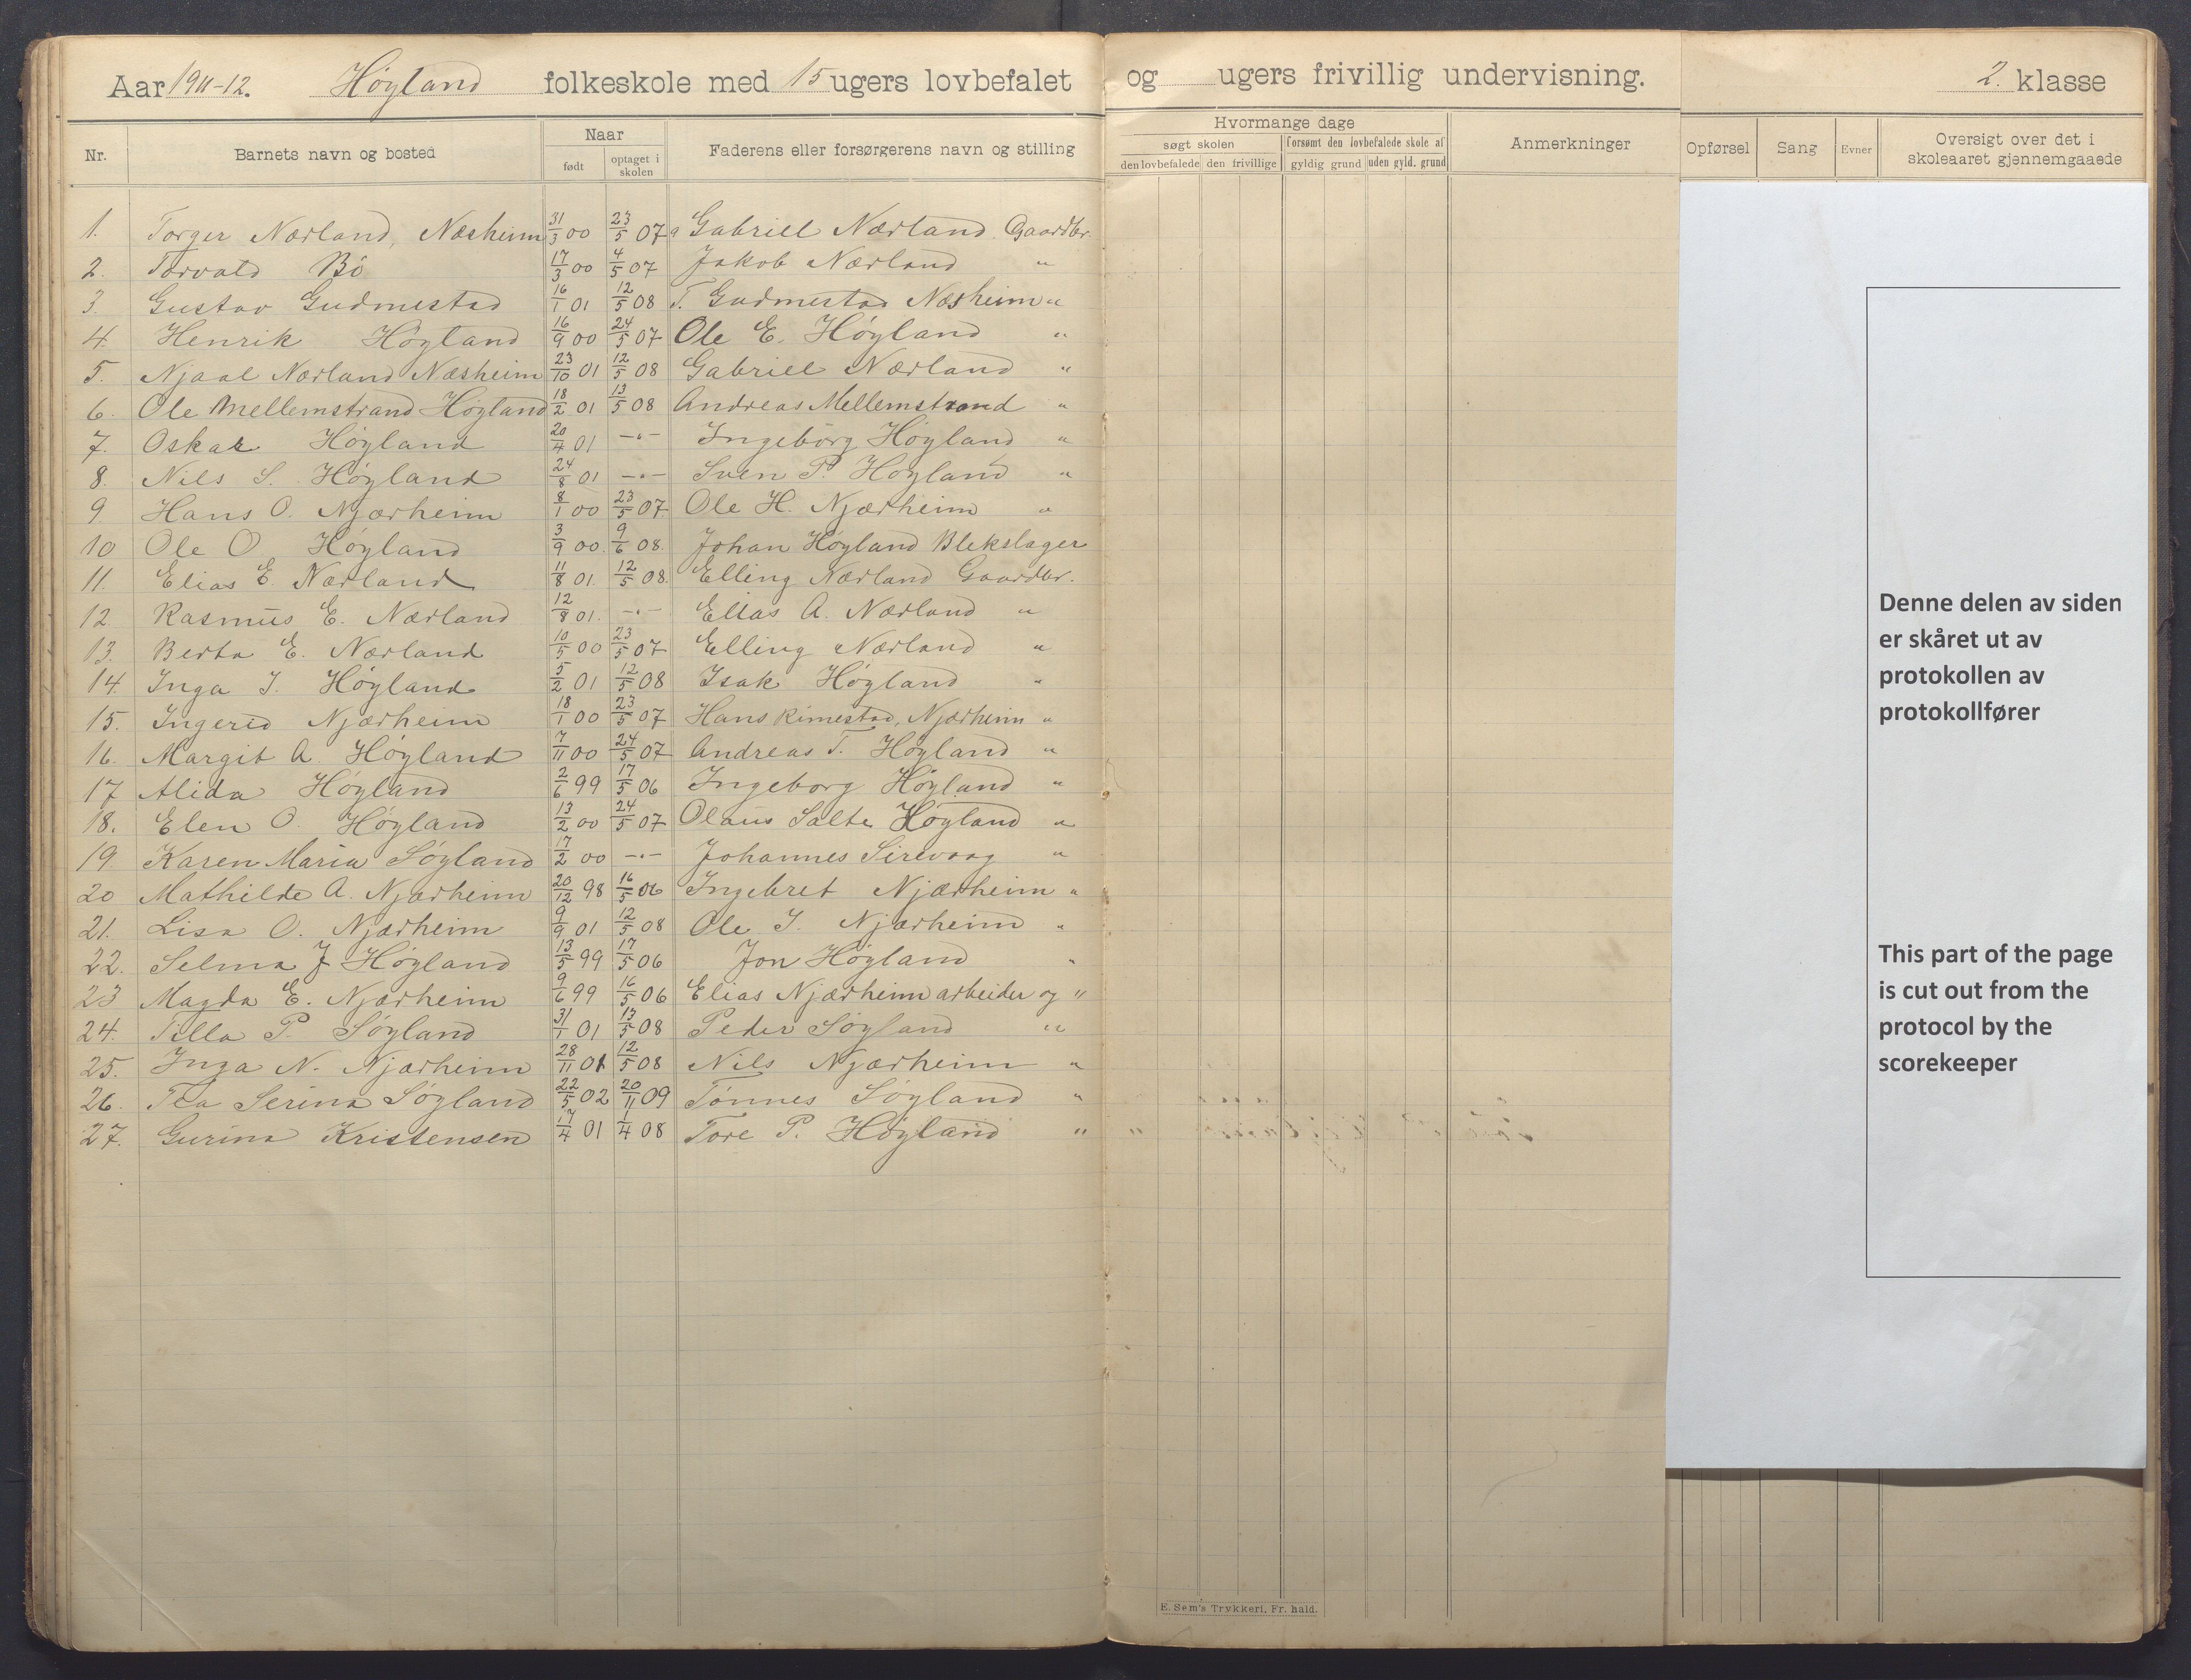 Aar 1911-12. Høyland folkeskole med 15 ugers lovbefalet og ugers frivillig undervisning. 2. klasse
Nr. Barnets navn og bosted Naar født optaget i skolen Faderens eller forsørgerens navn og stilling Hvormange dage søgt skolen den lovbefalede den frivillige forsømt den lovbefalede skole af gyldig grund uden gyld. grund Anmerkninger Opførsel Sang Evner Oversigt over det i skoleaaret gjennemgaaede
1. Torger Nærland, Næsheim 31/3 00 23/5 07 Gabriel Nærland Gaardbr.
2. Torvald Bø 17/3 00 4/5 07 Jakob Nærland "
3. Gustav Gudmestad 16/1 01 12/5 08 T. Gudmestad Næsheim "
4. Henrik Høyland 16/9 00 24/5 07 Ole E. Høyland "
5. Njaal Nærland Næsheim 23/10 01 12/5 08 Gabriel Nærland "
6. Ole Mellemstrand Høyland 18/2 01 13/5 08 Andreas Mellemstrand "
7. Oskar Høyland 20/4 01 -"- Ingeborg Høyland "
8. Nils S. Høyland 24/8 01 -"- Sven P. Høyland "
9. Hans O. Njærheim 8/1 00 23/5 07 Ole H. Njærheim "
10 Ole O. Høyland 3/9 00. 9/6 08. Johan Høyland Blekslager
11. Elias E. Nærland 11/8 01. 12/5 08. Elling Nærland Gaardbr.
12. Rasmus E. Nærland 12/8 01. -"- Elias A. Nærland "
13. Berta E. Nærland 10/5 00 23/5 07 Elling Nærland "
14. Inga I. Høyland 5/2 01 12/5 08 Isak Høyland "
15. Ingerid Njærheim 18/1 00 23/5 07 Hans Rimestad, Njærheim "
16. Margit A. Høyland 7/11 00 24/5 07 Andreas T. Høyland "
17 Alida Høyland 2/6 99 17/5 06 Ingeborg Høyland "
18. Elen O. Høyland 13/2 00 24/5 07 Olaus Salte Høyland "
19. Karen Maria Søyland 17/2 00 -"- Johannes Sirevaag "
20 Mathilde A. Njærheim 20/12 98 16/5 06 Ingebret Njærheim "
21. Lisa O. Njærheim 9/9 01 12/5 08 Ole I. Njærheim "
22. Selma J Høyland 13/5 99 17/5 06 Jon Høyland "
23 Magda E. Njærheim 9/6 99 16/5 06 Elias Njærheim arbeider og "
24. Tilla P. Søyland 31/1 01 13/5 08 Peder Søyland "
25. Inga N. Njærheim 28/11 01 12/5 08 Nils Njærheim "
26. Tea Serina Søyland 22/5 02 20/11 09 Tønnes Søyland "
27. Gurina Kristensen 17/4 01 1/4 08 Tore P. Høyland "
Denne delen av siden
er skåret ut av
protokollen av
protokollfører
This part of the page
is cut out from the
protocol by the
scorekeeper
E. Sem's Trykkeri, Fr. hald.